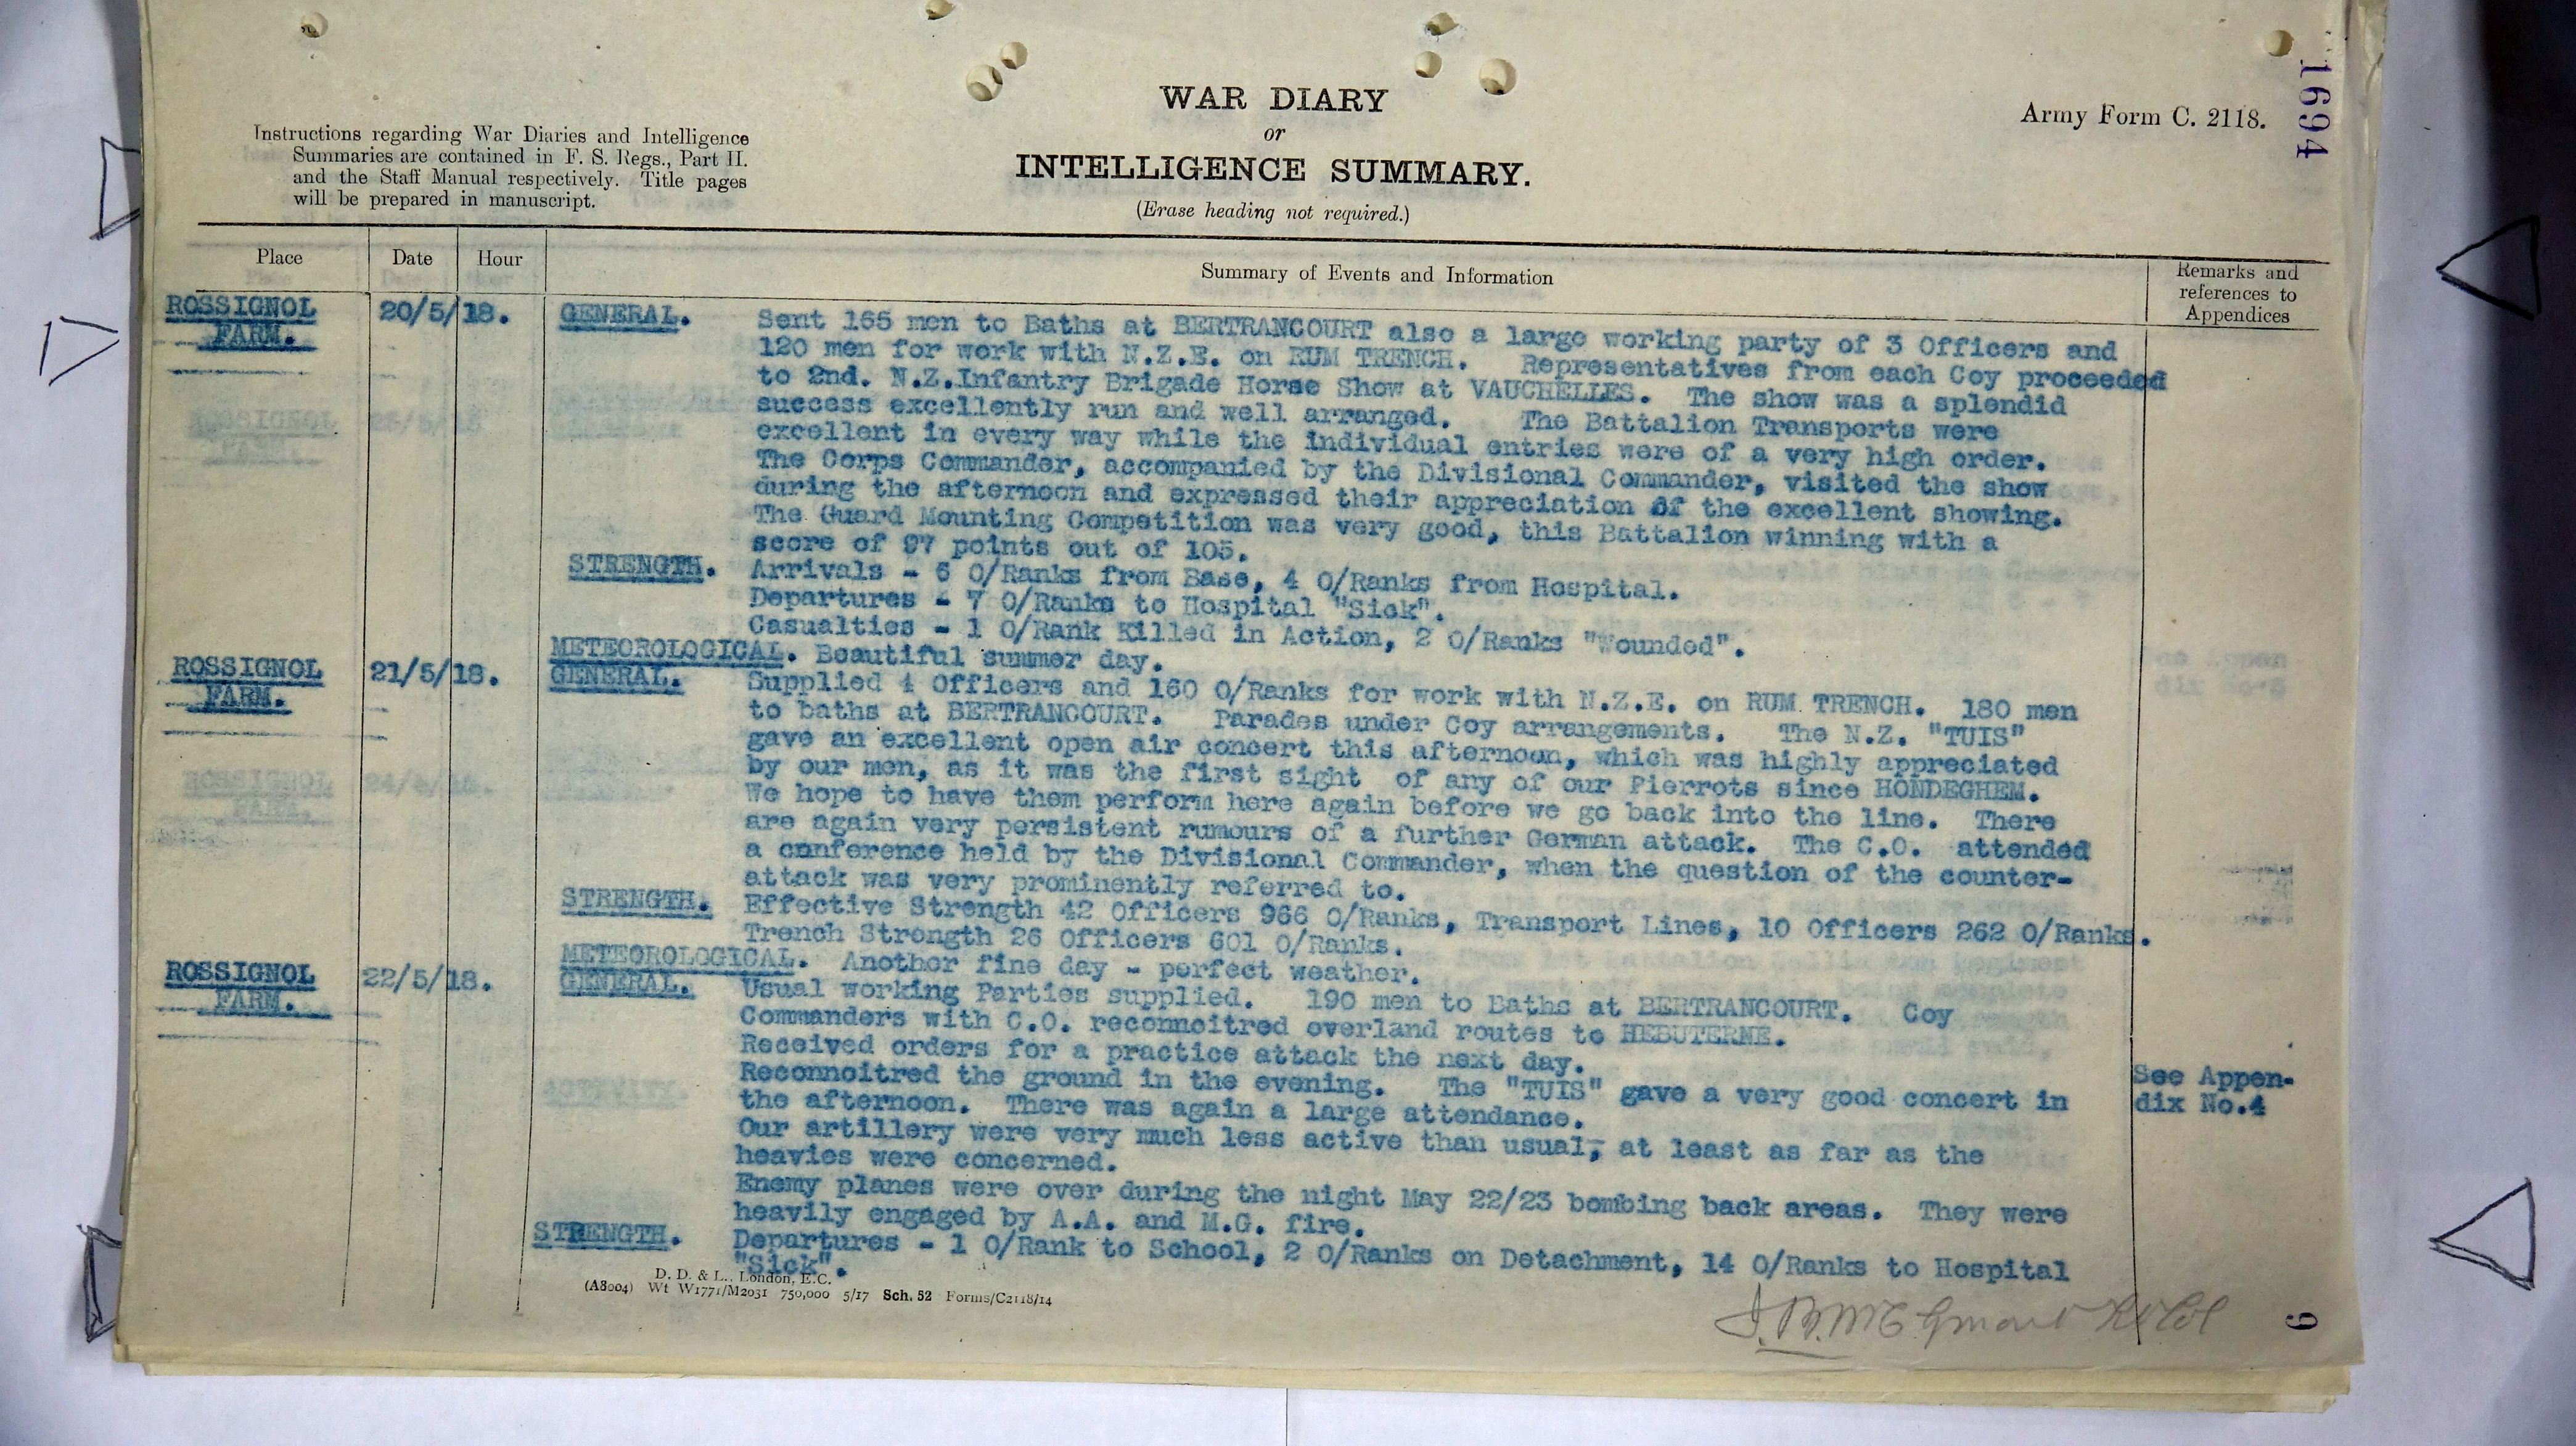 WAR DIARY
or
INTELLIGENCE SUMMARY.
(Erase heading not required.)
Instructions regarding War Diaries and Intelligence
Summaries are contained in F. S. Regs., Part II.
and the Staff Manual respectively. Title pages
will be prepared in manuscript.
Army Form C. 2118.
1694
Place
Date
Hour
Summary of Events and Information
Remarks and
references to
Appendices
ROSSIGNOL
FARM.
20/5/18.
GENERAL. Sent 165 men to Baths at BERTRANCOURT also a large working party of 3 Officers and
120 men for work with N.Z.E. on RUM TRENCH. Representatives from each Coy proceeded
to 2nd. N.Z.Infantry Brigade Horse Show at VAUCHELLES. The show was a splendid
success excellently run and well arranged. The Battalion Transports were
excellent in every way while the individual entries were of a very high order.
The Corps Commander, accompanied by the Divisional Commander, visited the show
during the afternoon and expressed their appreciation of the excellent showing.
The Guard Mounting Competition was very good, this Battalion winning with a
score of 97 points out of 105.
STRENGTH. Arrivals - 6 O/Ranks from Base, 4 O/Ranks from Hospital.
Departures - 7 O/Ranks to Hospital "Sick".
Casualties - 1 O/Rank Killed in Action, 2 O/Ranks "Wounded".
METEOROLOGICAL. Beautiful summer day.
ROSSIGNOL
FARM.
21/5/18.
GENERAL. Supplied 4 Officers and 160 O/Ranks for work with N.Z.E. on RUM TRENCH. 180 men
to baths at BERTRANCOURT. Parades under Coy arrangements. The N.Z. "TUIS"
gave an excellent open air concert this afternoon, which was highly appreciated
by our men, as it was the first sight of any of our Pierrots since HONDEGHEM.
We hope to have them perform here again before we go back into the line. There
are again very persistent rumours of a further German attack. The C.O. attended
a conference held by the Divisional Commander, when the question of the counter-
attack was very prominently referred to.
STRENGTH. Effective Strength 42 Officers 966 O/Ranks, Transport Lines, 10 Officers 262 O/Ranks.
Trench Strength 26 Officers 601 O/Ranks.
METEOROLOGICAL. Another fine day - perfect weather.
ROSSIGNOL
FARM.
22/5/18.
GENERAL. Usual working Parties supplied. 190 men to Baths at BERTRANCOURT. Coy
Commanders with C.O. reconnoitred overland routes to HEBUTERNE.
Received orders for a practice attack the next day.
Reconnoitred the ground in the evening. The "TUIS" gave a very good concert in
the afternoon. There was again a large attendance.
Our artillery were very much less active than usual, at least as far as the
heavies were concerned.
Enemy planes were over during the night May 22/23 bombing back areas. They were
heavily engaged by A.A. and M.G. fire.
See Appen-
dix No.4
STRENGTH. Departures - 1 O/Rank to School, 2 O/Ranks on Detachment, 14 O/Ranks to Hospital
"Sick".
D. D. & L., London, E.C.
(A8004) Wt W1771/M2031 750,000 5/17 Sch. 52 Forms/C2118/14
9